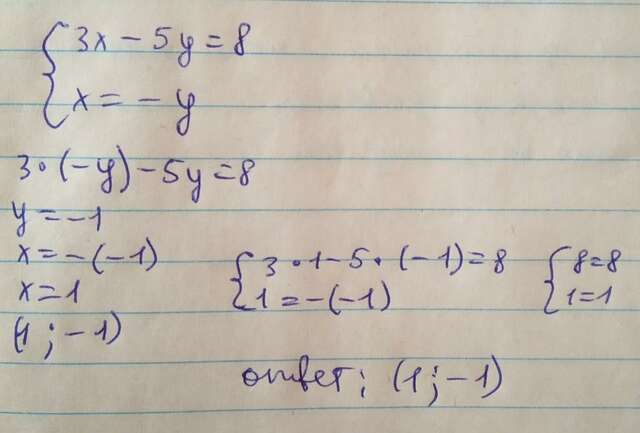 3x - 5y = 8
x = - y
3 · (-y) - 5y = 8
y = -1
x = -(-1)
x = 1
(1 ; -1)
3 · 1 - 5 · (-1) = 8
1 = -(-1)
8 = 8
1 = 1
ответ: (1 ; -1)